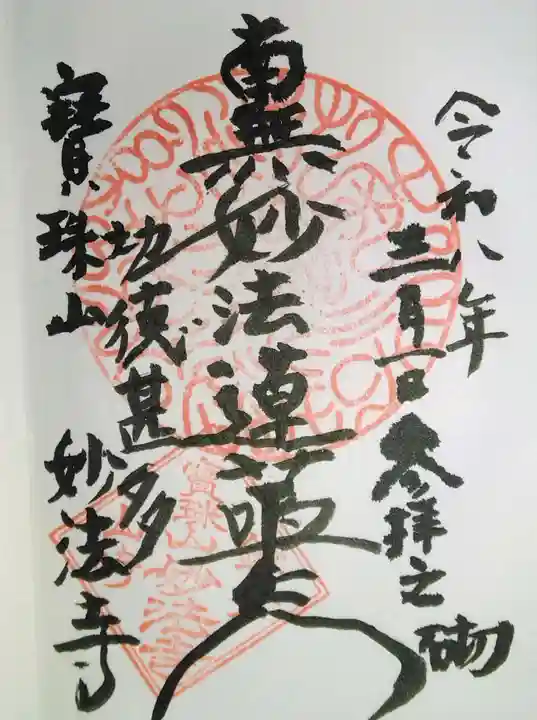 令和八年
三月一日 参拝之砌
南無妙法蓮華経
功徳甚多
寳珠山 妙法寺
寳珠山
妙法寺